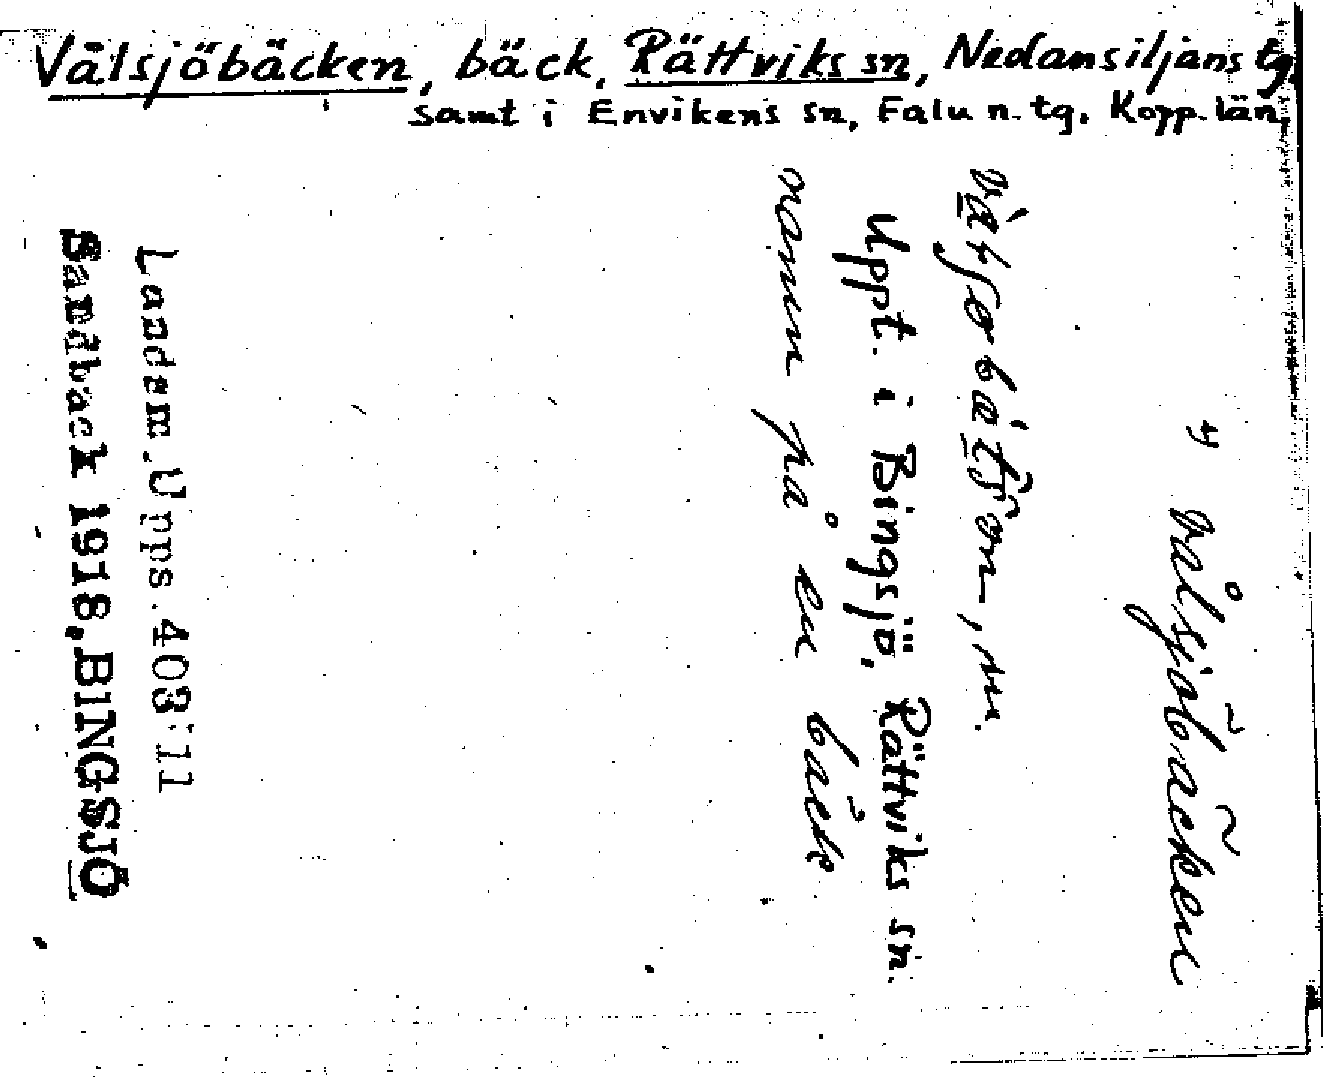 Välsjöbäcken, bäck, Rättviks sn, Nedansiljans tg,
samt i Envikens sn, Falu n. tg. Kopp. län,
Välsjöbäcken
Uppt. i Bingsjö, Rättviks sn.
namn på en bäck
Landsm. Upps. 403:11
Sandback 1918, BINGSJÖ